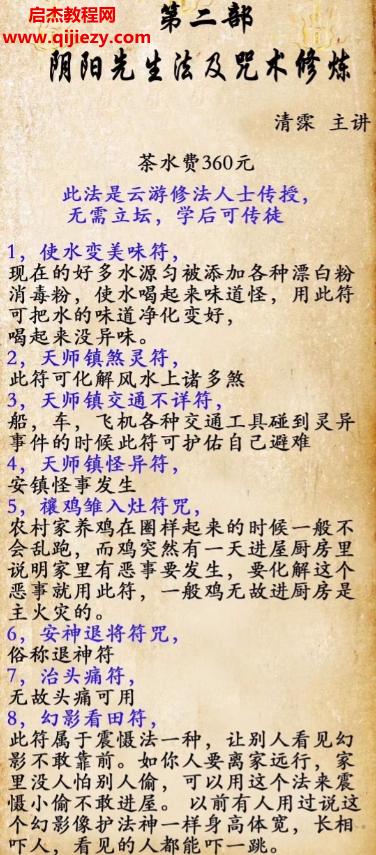 启杰教育网
www.qijiezy.com
第二部
阴阳先生法及咒术修炼
清霂 主讲
茶水费360元
此法是云游修法人士传授，
无需立坛，学后可传徒
1，使水变美味符，
现在的好多水源匀被添加各种漂白粉
消毒粉，使水喝起来味道怪，用此符
可把水的味道净化变好，
喝起来没异味。
2，天师镇煞灵符，
此符可化解风水上诸多煞
3，天师镇交通不详符，
船，车，飞机各种交通工具碰到灵异
事件的时候此符可护佑自己避难
4，天师镇怪异符，
安镇怪事发生
5，禳鸡雏入灶符咒，
农村家养鸡在圈样起来的时候一般不
会乱跑，而鸡突然有一天进屋厨房里
说明家里有恶事要发生，要化解这个
恶事就用此符，一般鸡无故进厨房是
主火灾的。
6，安神退将符咒，
俗称退神符
7，治头痛符，
无故头痛可用
8，幻影看田符，
此符属于震慑法一种，让别人看见幻
影不敢靠前。如你人要离家远行，家
里没人怕别人偷，可以用这个法来震
慑小偷不敢进屋。 以前有人用过说这
个幻影像护法神一样身高体宽，长相
吓人，看见的人都能吓一跳。